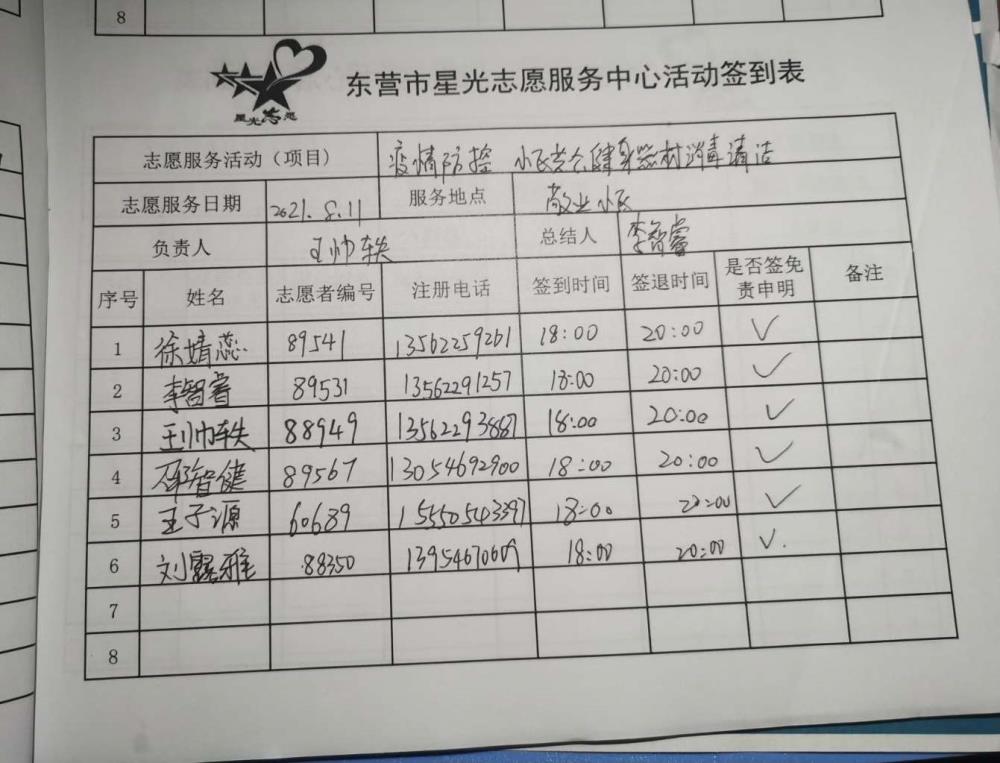 8
星光志愿
东营市星光志愿服务中心活动签到表
志愿服务活动（项目） 疫情防控 小区公共健身器材消毒清洁
志愿服务日期 2021.8.11 服务地点 敬业小区
负责人 王帅轶 总结人 李智睿
序号 姓名 志愿者编号 注册电话 签到时间 签退时间 是否签免责申明 备注
1 徐婧蕊 89541 13562259261 18:00 20:00 ✓
2 李智睿 89531 13562291257 18:00 20:00 ✓
3 王帅轶 88949 13562293887 18:00 20:00 ✓
4 邵智健 89567 13054692900 18:00 20:00 ✓
5 王子源 60689 15550543397 18:00 20:00 ✓
6 刘露雅 88350 13954670609 18:00 20:00 ✓
7
8